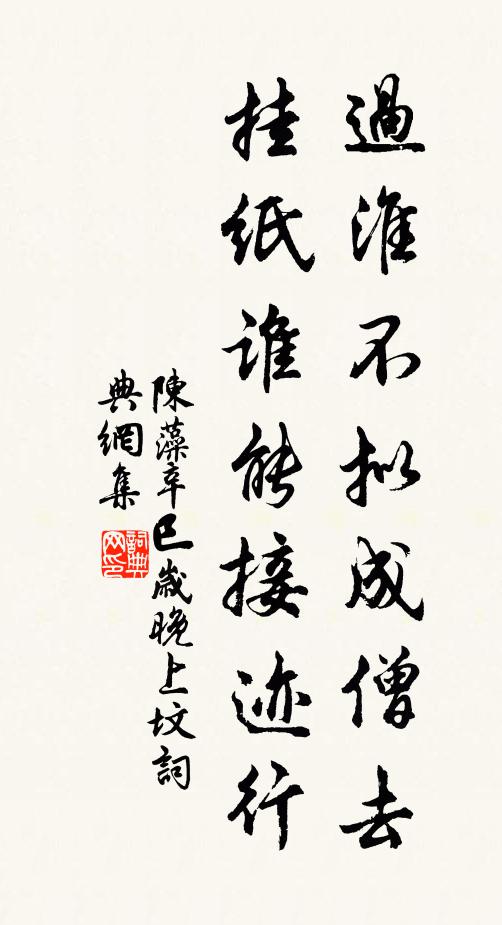 過淮不拟成僧去
挂紙誰能接迹行
陳藻辛巳歲晚上坟詞
典網集
詞典网印